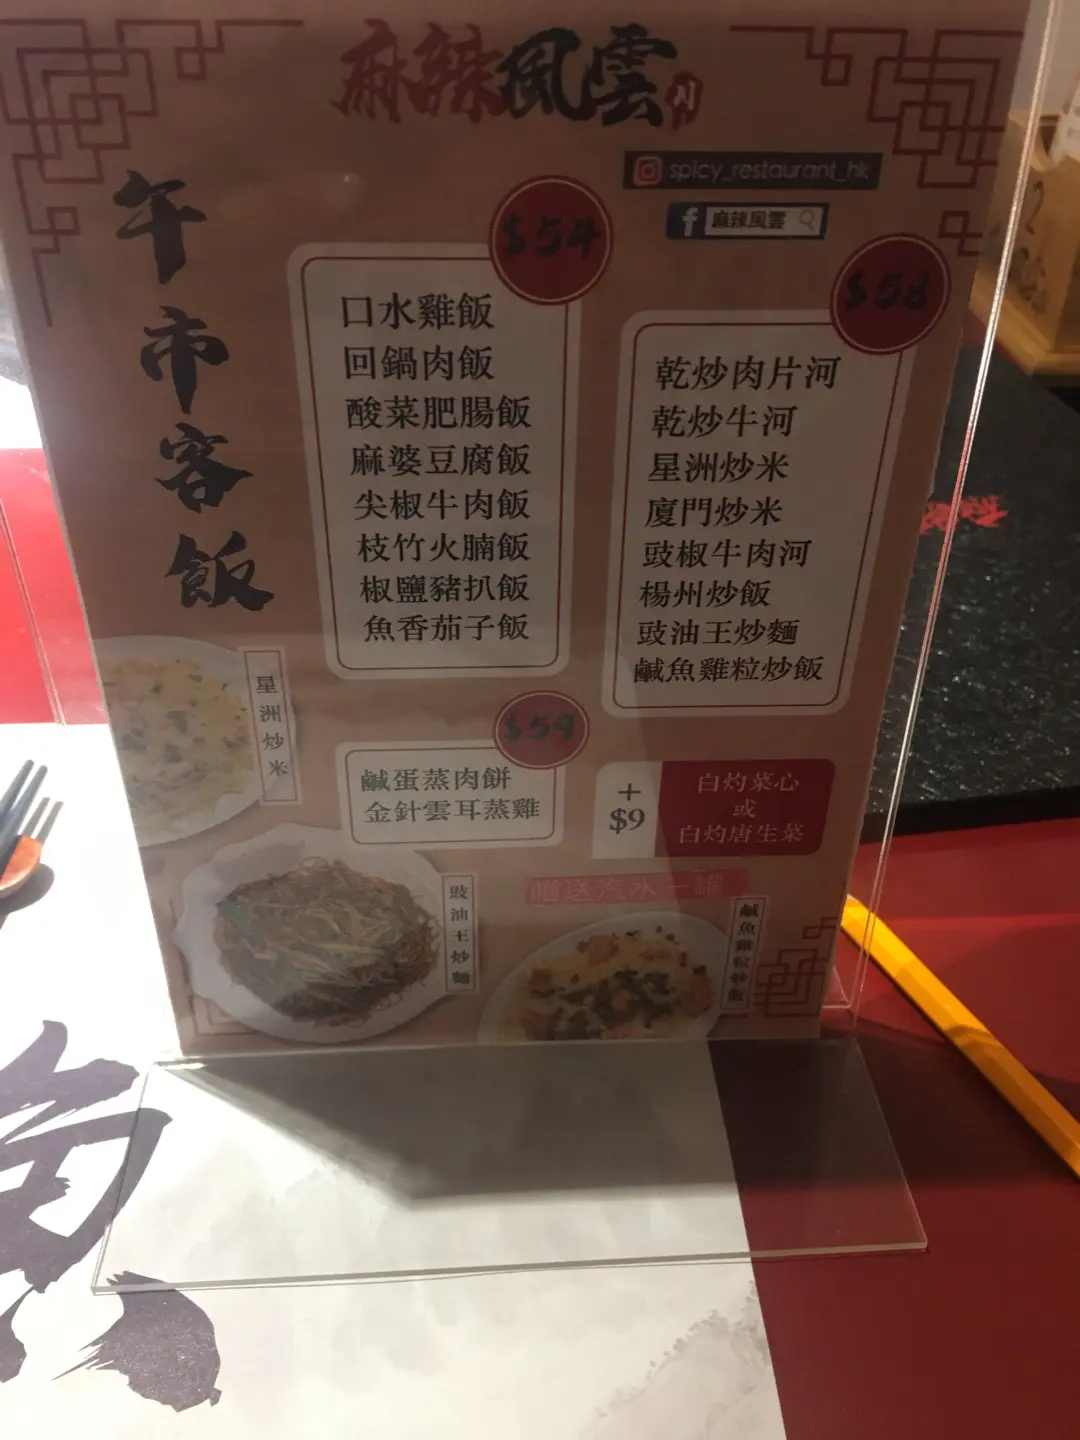 麻辣風雲
spicy_restaurant_hk
麻辣風雲
午市客飯
$54
口水雞飯
回鍋肉飯
酸菜肥腸飯
麻婆豆腐飯
尖椒牛肉飯
枝竹火腩飯
椒鹽豬扒飯
魚香茄子飯
$58
乾炒肉片河
乾炒牛河
星洲炒米
廈門炒米
豉椒牛肉河
楊州炒飯
豉油王炒麵
鹹魚雞粒炒飯
$59
鹹蛋蒸肉餅
金針雲耳蒸雞
+
$9
白灼菜心
或
白灼唐生菜
贈送汽水一罐
星洲炒米
豉油王炒麵
鹹魚雞粒炒飯